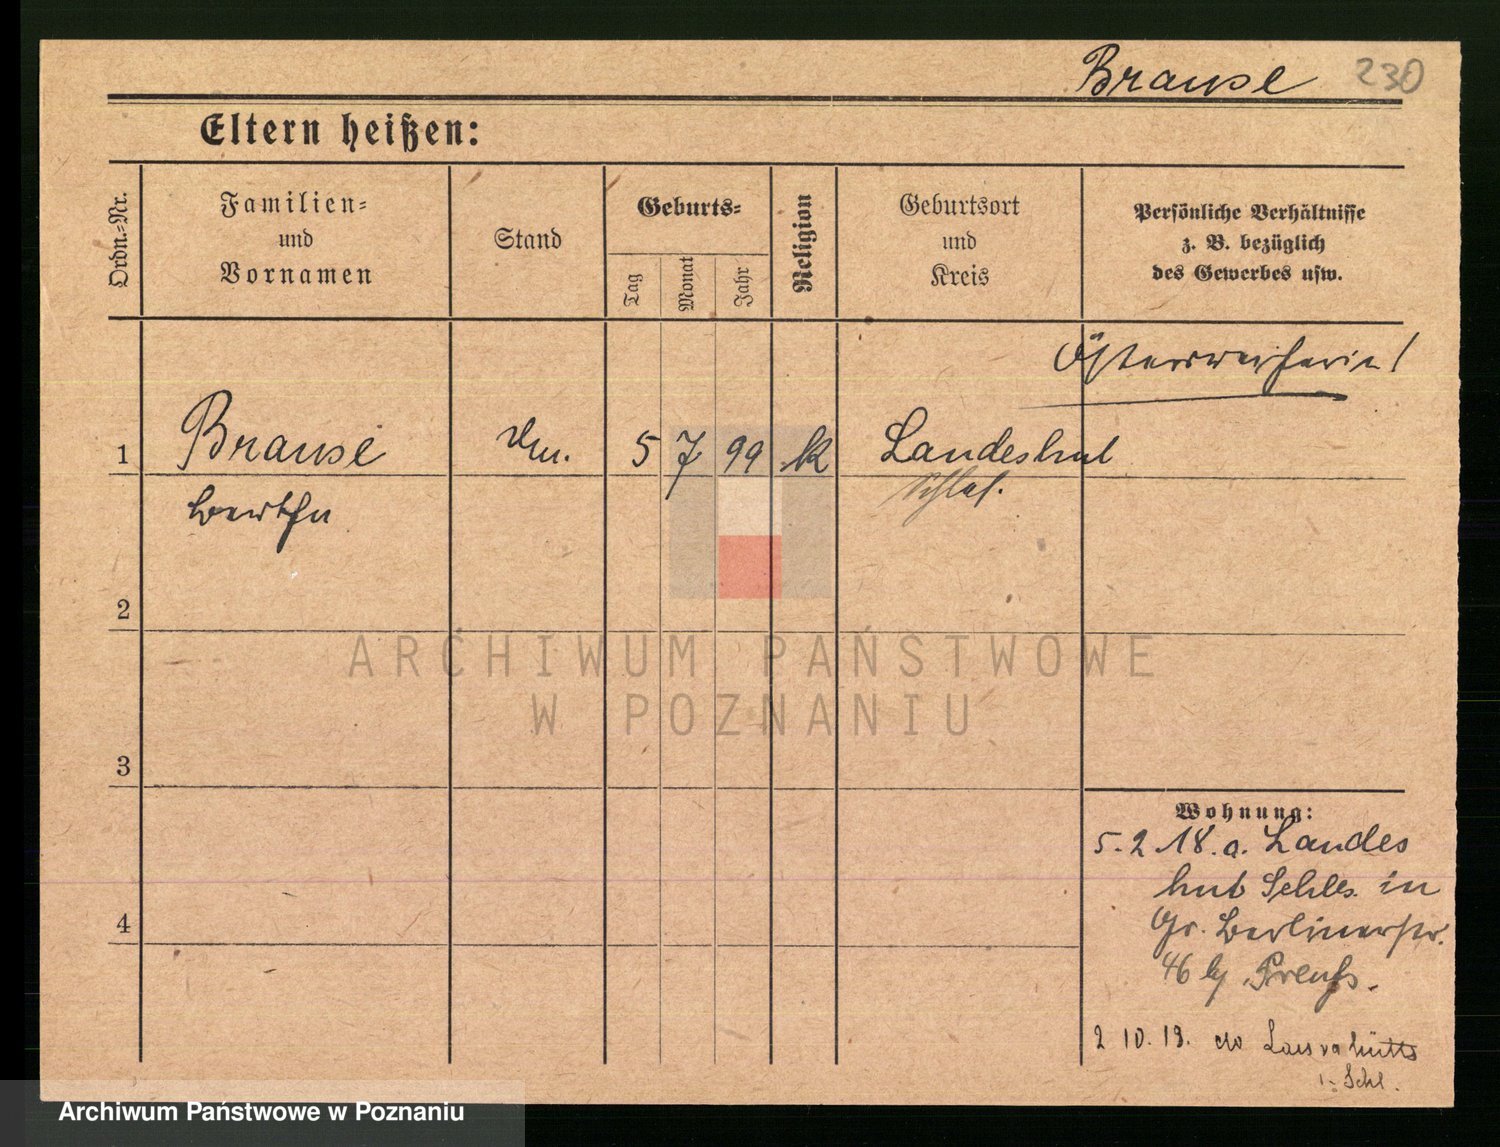 Brause 230
Eltern heißen:
Ordn.-Nr.
Familien-
und
Vornamen
Stand
Geburts-
Tag
Monat
Jahr
Religion
Geburtsort
und
Kreis
Persönliche Verhältnisse
z. B. bezüglich
des Gewerbes usw.
Österreicherin!
1 Brause 5 7 99 k Landeshut
Bertha Schles.
2
3
4
Wohnung:
5.2.18. a. Landes
hut Schles. in
Gr. Berlinerstr.
46 by Preuß.
2 10. 19.
i. Schl.
ARCHIWUM PAŃSTWOWE
W POZNANIU
Archiwum Państwowe w Poznaniu